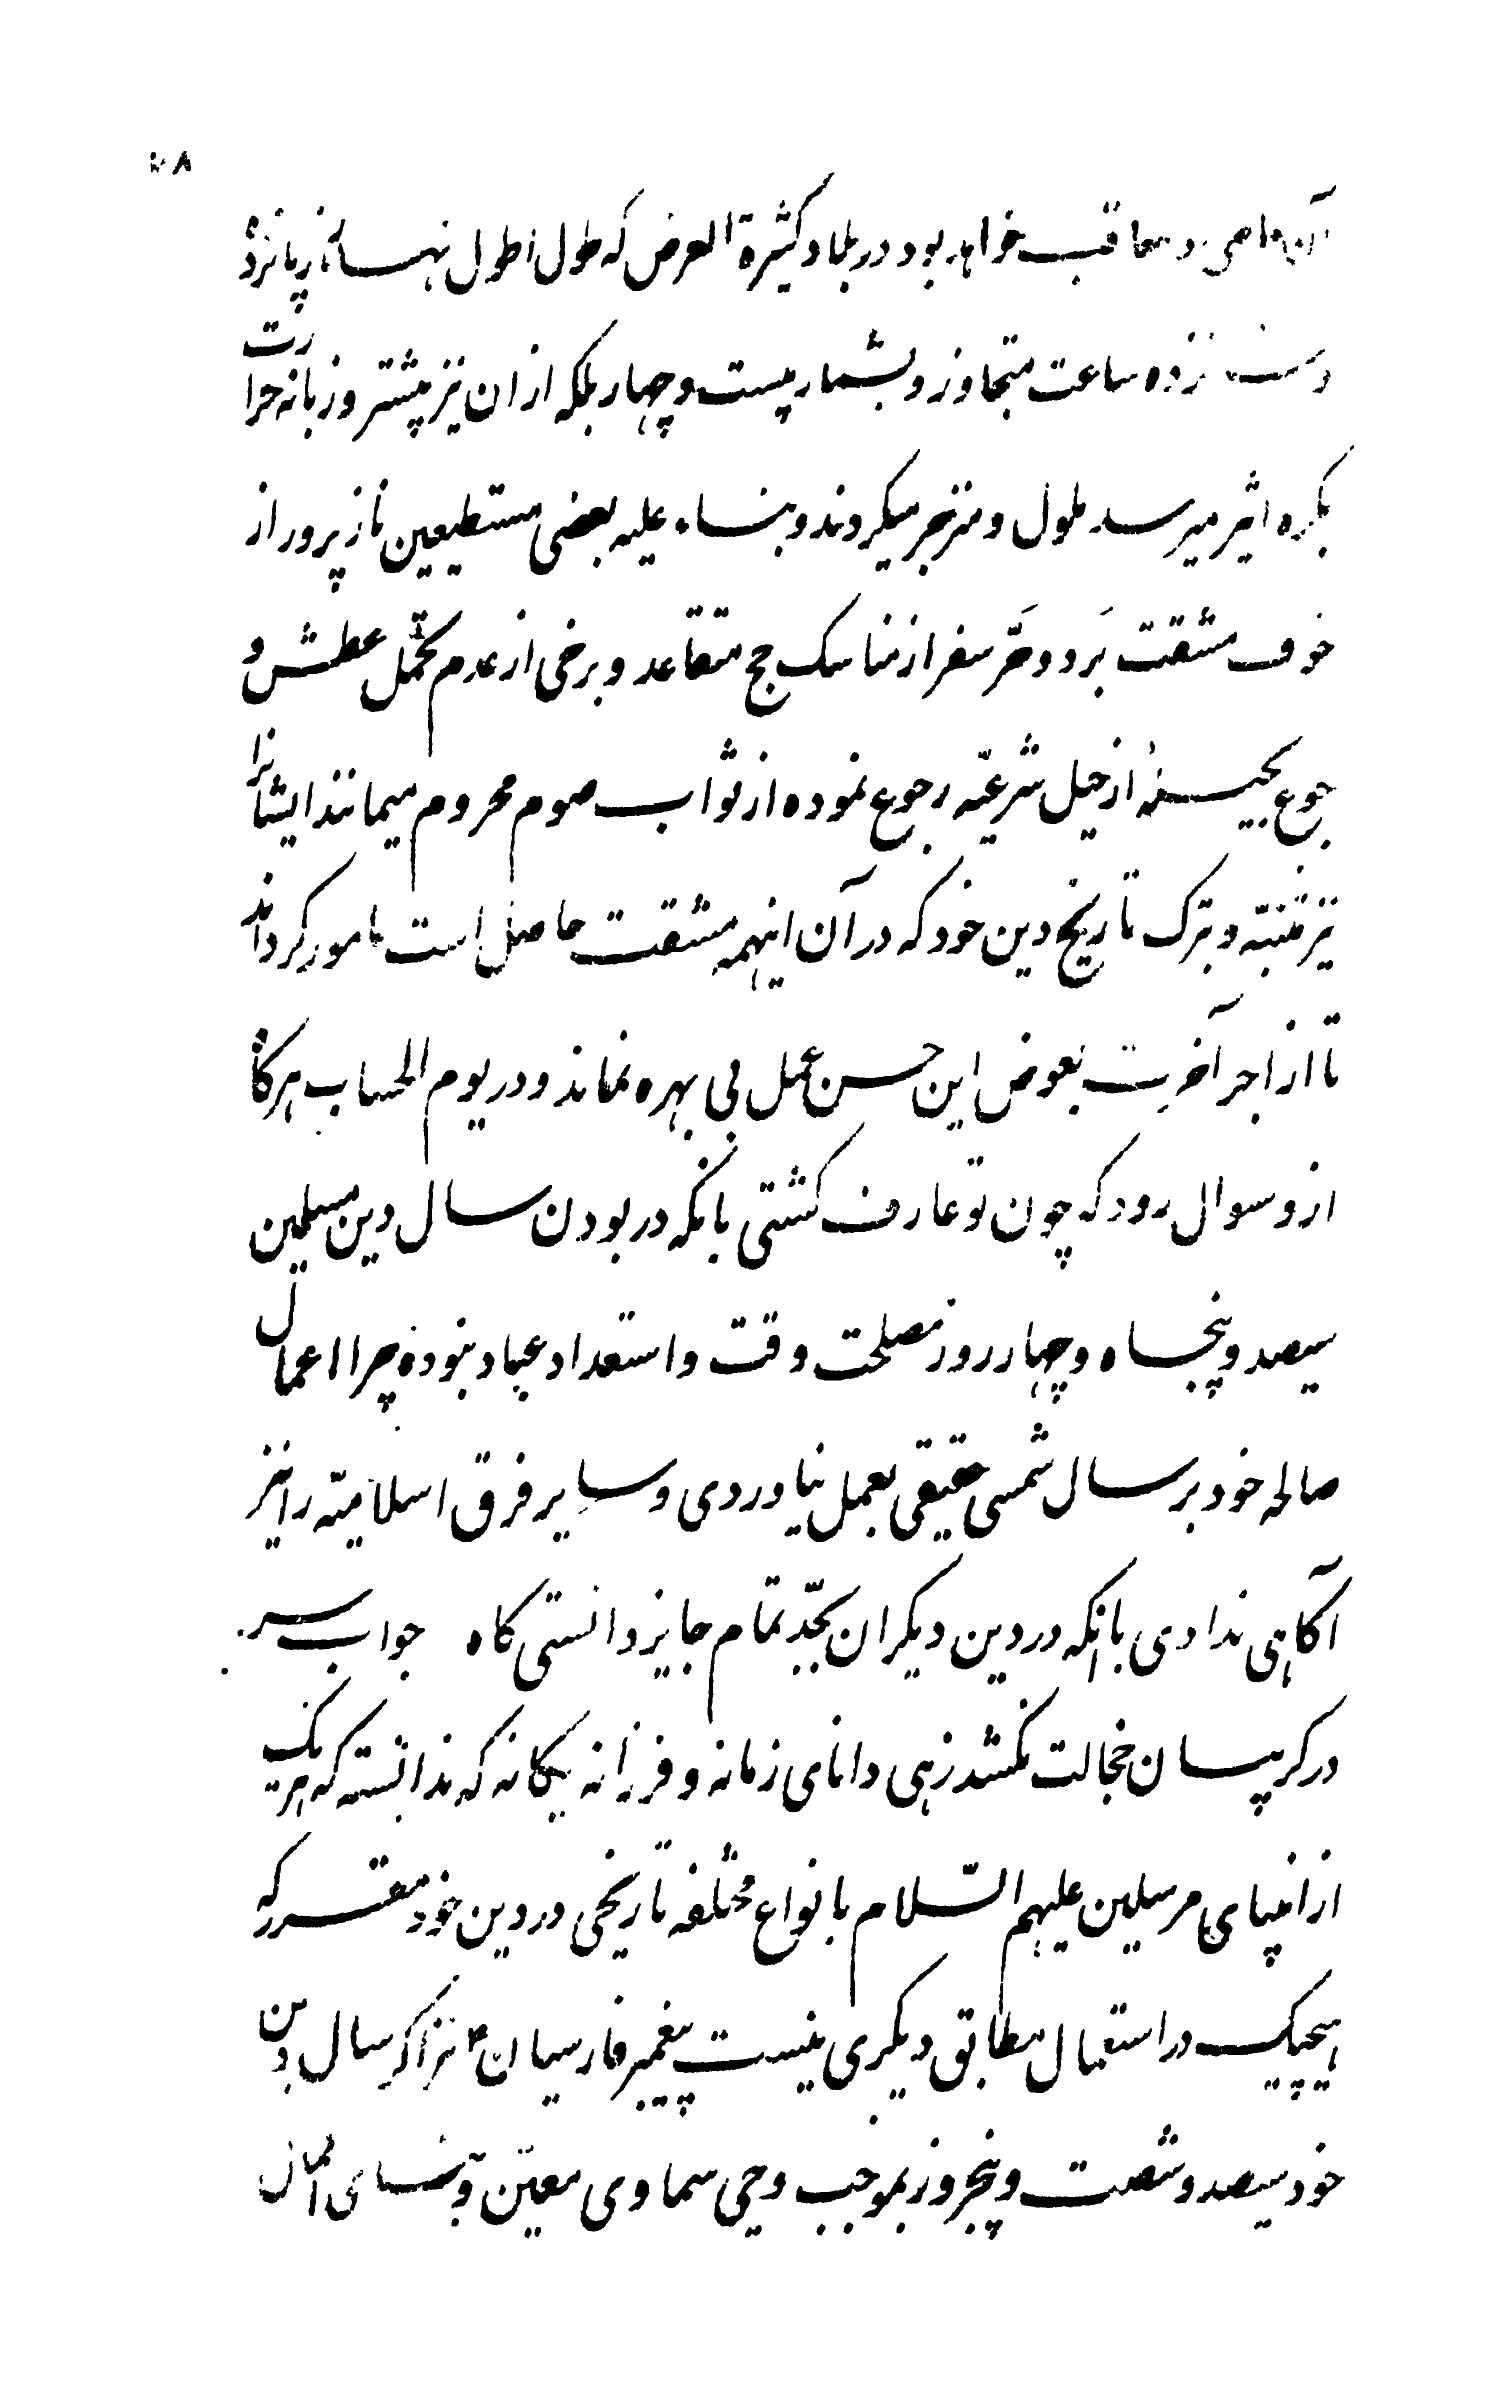 آن عاصی و معاقب خواهد بود در بلاد کثیرة العرض که طول اطول نهارش از پانزده
و شانزده ساعت متجاوز و بشمار بیست و چهار بلکه ازان نیز بیشتر و زبانه حرارت
بکره اثیر میرسد ملول و منزجر میکردند و بناء علیه بعضی مستطیعین نازپرور از
خوف مشقت بَرد و حَرّ سفر از مناسک حج متقاعد و برخی از عدم تحمّل عطش و
جوع بحیله از حیل شرعیّه رجوع نموده از ثواب صوم محروم میمانند ایشانرا
نیز تنبّه و بترک تاریخ دین خود که در آن اینهمه مشقت حاصل است مامور کرداند
تا از اجر آخرت بعوض این حسن عمل بی بهره نماند و در یوم الحساب هرکاه
ازو سوال رود که چون تو عارف کشتی بانکه در بودن سال دین مسلمین
سیصد و پنجاه و چهار روز مصلحت وقت و استعداد عباد نبوده چرا اعمال
صالحه خود بر سال شمسی حقیقی بعمل نیاوردی و سایر فرق اسلامیّه را نیز
آکاهی ندادی بانکه در دین دیکران بجدّ تمام جایز دانستی کاه جواب سر
در کریبان خجالت نکشد زهی دانای زمانه و فرزانه یکانه که ندانسته که هریک
از انبیای مرسلین علیهم السّلام بانواع مختلفه تاریخی در دین خود مقرر که
هیچیک در استعمال مطابق دیکری نیست پیغمبر فارسیان ۴ نیز اکر سال دین
خود سیصد و شصت و پنجروز بموجب وحی سماوی معیّن و